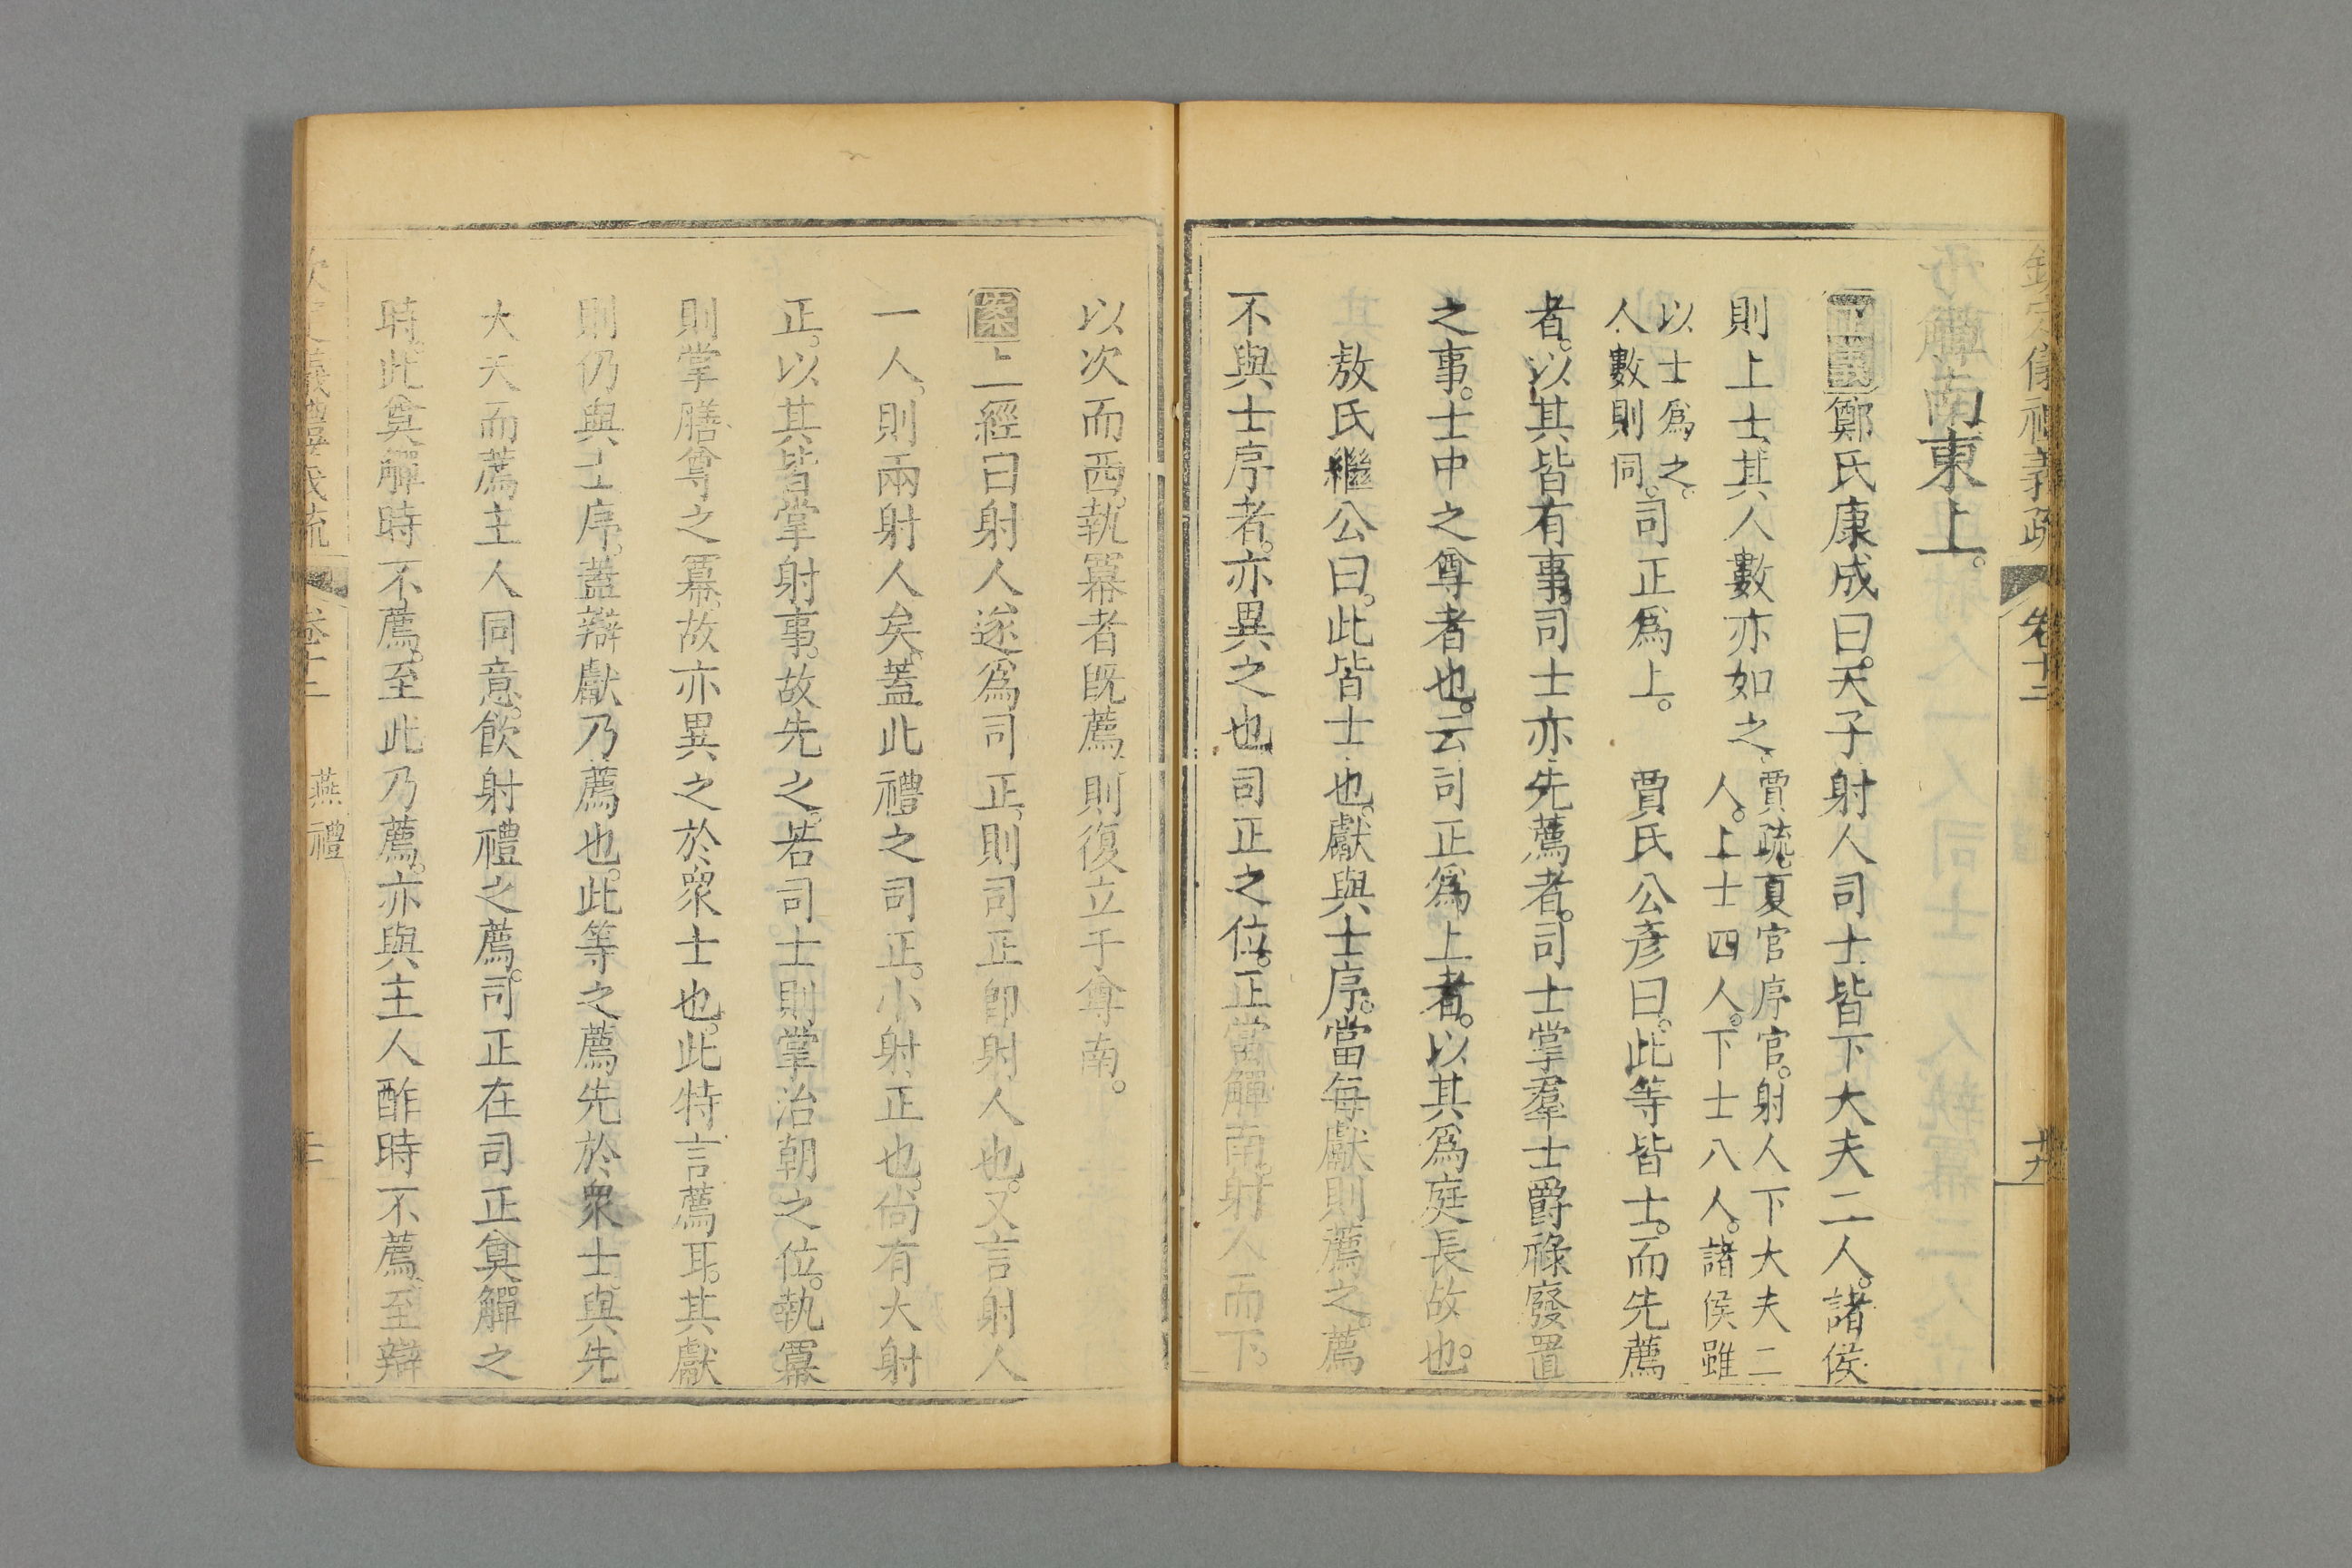 欽定儀禮義疏 卷十二 十九
南東上。
正義鄭氏康成曰。天子射人司士皆下大夫二人。諸侯
則上士。其人數亦如之。賈疏。夏官序官。射人下大夫二人。上士四人。下士八人。諸侯雖
以士爲之。人數則同。司正爲上。 賈氏公彥曰。此等皆士。而先薦
者。以其皆有事。司士亦先薦者。司士掌羣士爵祿廢置
之事。士中之尊者也。云司正爲上者。以其爲庭長故也。
敖氏繼公曰。此皆士也。獻與士序。當每獻則薦之。薦
不與士序者。亦異之也。司正之位。正當觶南。射人而下。
以次而西。執冪者旣薦。則復立于尊南。
案上經曰射人遂爲司正。則司正卽射人也。又言射人
一人。則兩射人矣。蓋此禮之司正。小射正也。尙有大射
正。以其皆掌射事。故先之。若司士則掌治朝之位。執冪
則掌膳尊之冪。故亦異之於衆士也。此特言薦耳。其獻
則仍與士序。蓋辯獻乃薦也。此等之薦先於衆士。與先
大夫而薦主人同意。飮射禮之薦。司正在司正奠觶之
時。此奠觶時不薦。至此乃薦。亦與主人酢時不薦。至辯
義禮義疏 卷十二 燕禮